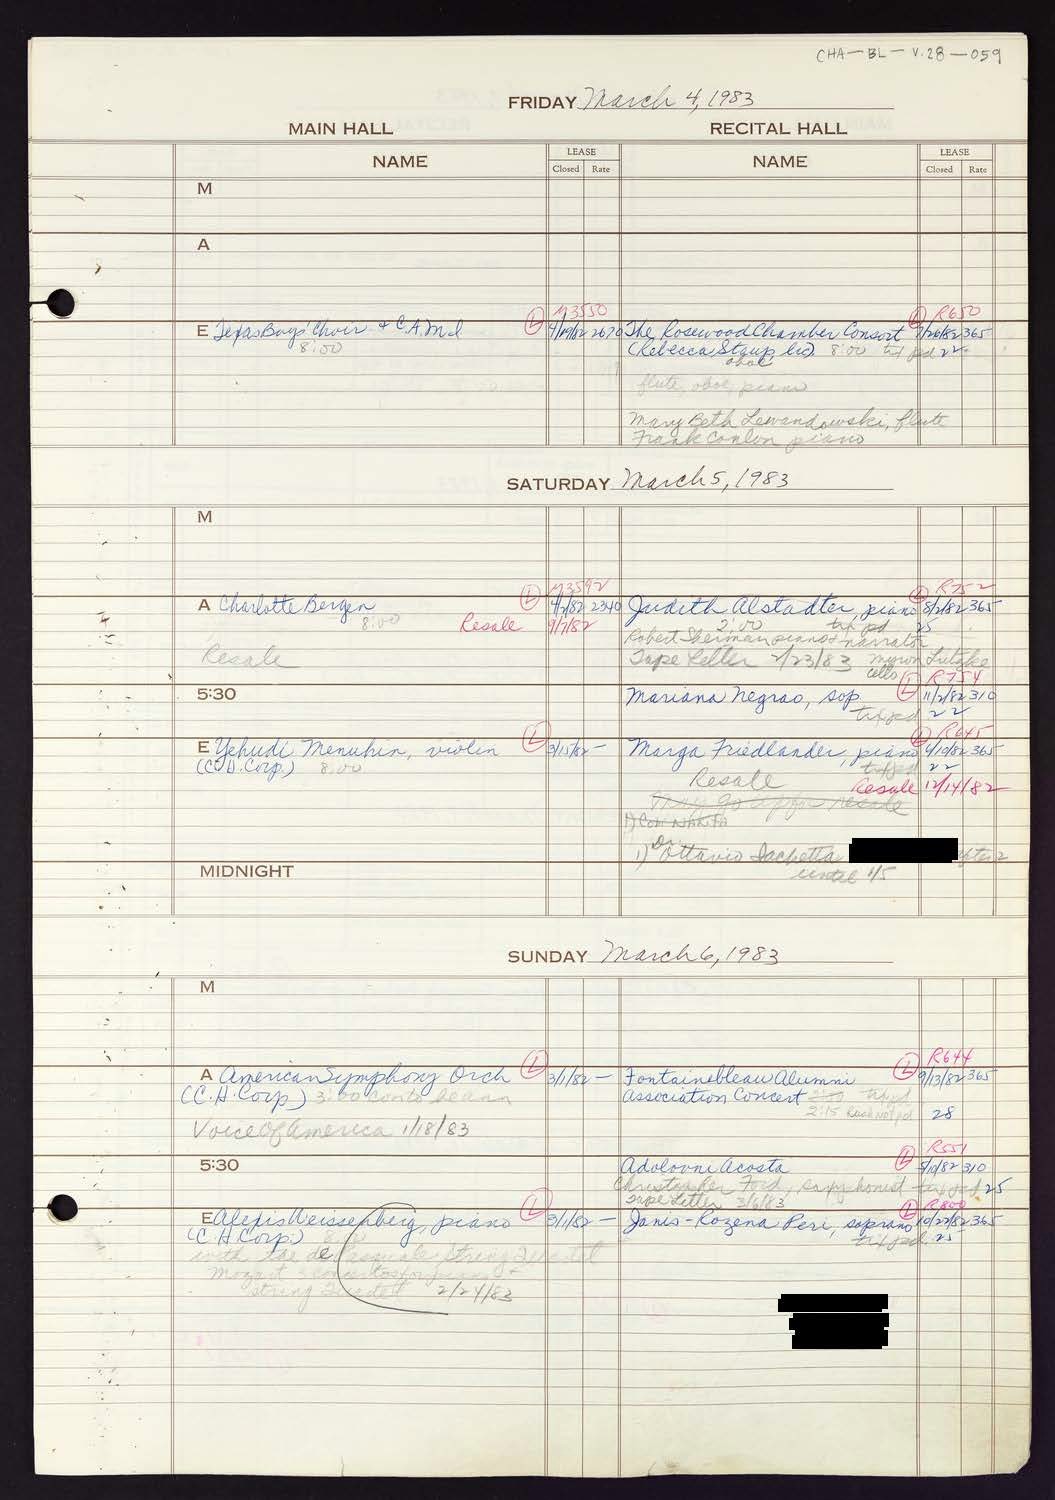 CHA-BL-V.28-059
FRIDAY March 4, 1983
MAIN HALL RECITAL HALL
NAME LEASE NAME LEASE
Closed Rate Closed Rate
M
A
M3550 R650
E Texas Boys Choir + C.A.M.I L 4/19/82 2670 The Rosewood Chamber Consort L 7/26/82 365
8:00 (Rebecca Stoup lic). 8:00 tix pd 22
oboe
flute, oboe, piano
Mary Beth Lewandowski, flute
Frank Conlon piano
SATURDAY March 5, 1983
M
M3592 R752
A Charlotte Bergen L 4/2/82 2340 Judith Alstadter, piano L 8/2/82 365
8:00 Resale 9/7/82 2:00 tix pd 25
Robert Sherman piano + narrator
Resale Tape Letter 2/23/83 Myron Lutzke
cello R754
5:30 Mariana Negrao, sop L 11/2/82 310
tix pd 22
R645
E Yehudi Menuhin, violin L 3/15/82 - Marga Friedlander, piano L 4/10/82 365
(C.H. Corp.) 8:00 tix pd 22
Resale Resale 12/14/82
May go up for resale
1)
1) Dr. Ottavio after 2
MIDNIGHT until 1/5
SUNDAY March 6, 1983
M
R644
A American Symphony Orch L 3/1/82 - Fontainebleau Alumni L 9/13/82 365
(C.H. Corp) 3:00 Association Concert 2:00 tix pd
2:15 28
Voice Of America 1/18/83
R551
5:30 Adolovni Acosta L 5/10/82 310
Christia Ford, tix pd 25
Tape Letter 3/6/83 R800
E Alexis Weissenberg, piano L 3/1/82 - Janis-Rozena Peri, soprano L 10/22/82 365
(C.H. Corp.) 8:00 tix pd. 25
with the de Pasquale String Quartet
Mozart 3 concertos for piano +
String Quartet 2/24/83